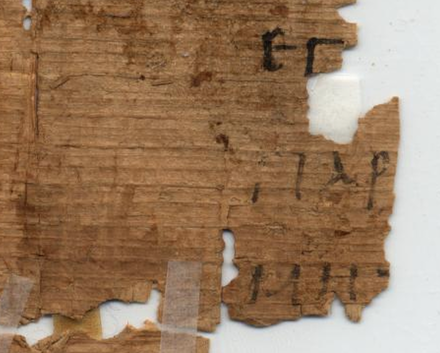 ΕΓ
ΠΑΡ
ΜΗ